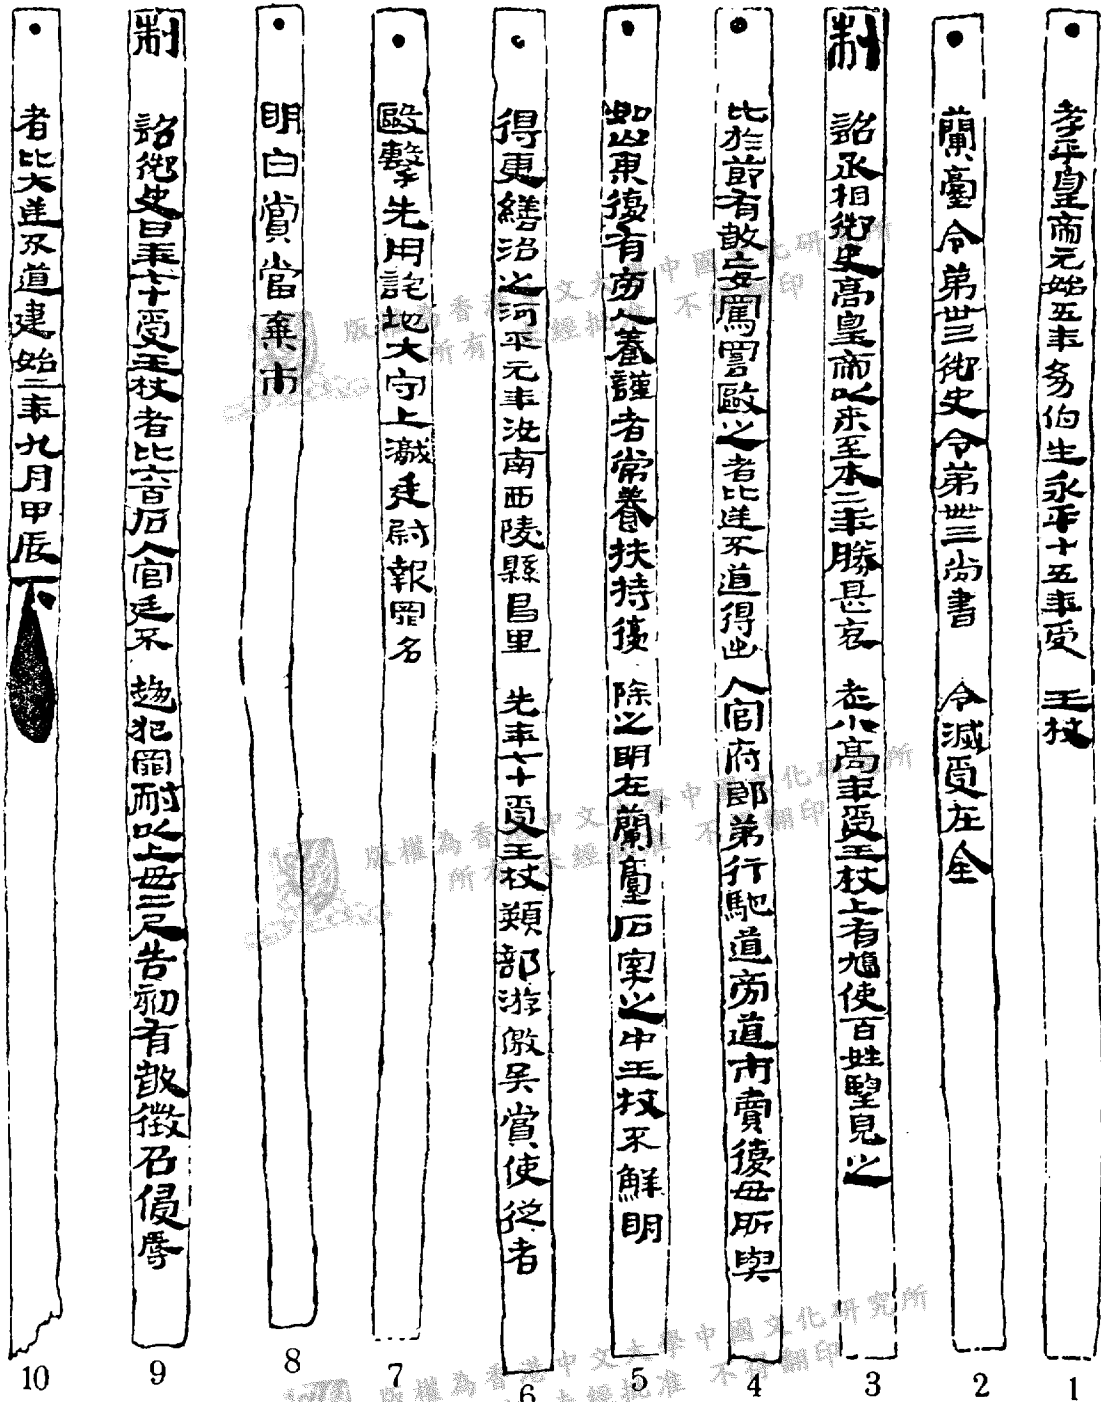 孝平皇帝元始五年幼伯生永平十五年受 王杖
1
蘭臺令弟卅三御史令弟卌三尚書 令滅受在金
2
制 詔丞相御史高皇帝以來至本二年勝甚哀 老小高年受王杖上有鳩使百姓望見之
3
比於節有敢妄罵詈毆之者比逆不道得出 入官府郎弟行馳道旁道市賣復毋所與
4
如山東復有旁人養謹者常養扶持復 除之明在蘭臺石室之中王杖不鮮明
5
得更繕治之河平元年汝南西陵縣昌里 先年七十受王杖熲部游徼吳賞使從者
6
毆擊先用訴地大守上讞廷尉報罪名
7
明白賞當棄市
8
制 詔御史曰年七十受王杖者比六百石入官廷不 趨犯罪耐以上毋二尺告劾有敢徵召侵辱
9
者比大逆不道建始二年九月甲辰下
10
版權為香港中文大學中國文化研究所
所有 未經批准 不得翻印
版權為香港中文大學中國文化研究所
所有 未經批准 不得翻印
版權為香港中文大學中國文化研究所
未經批准 不得翻印